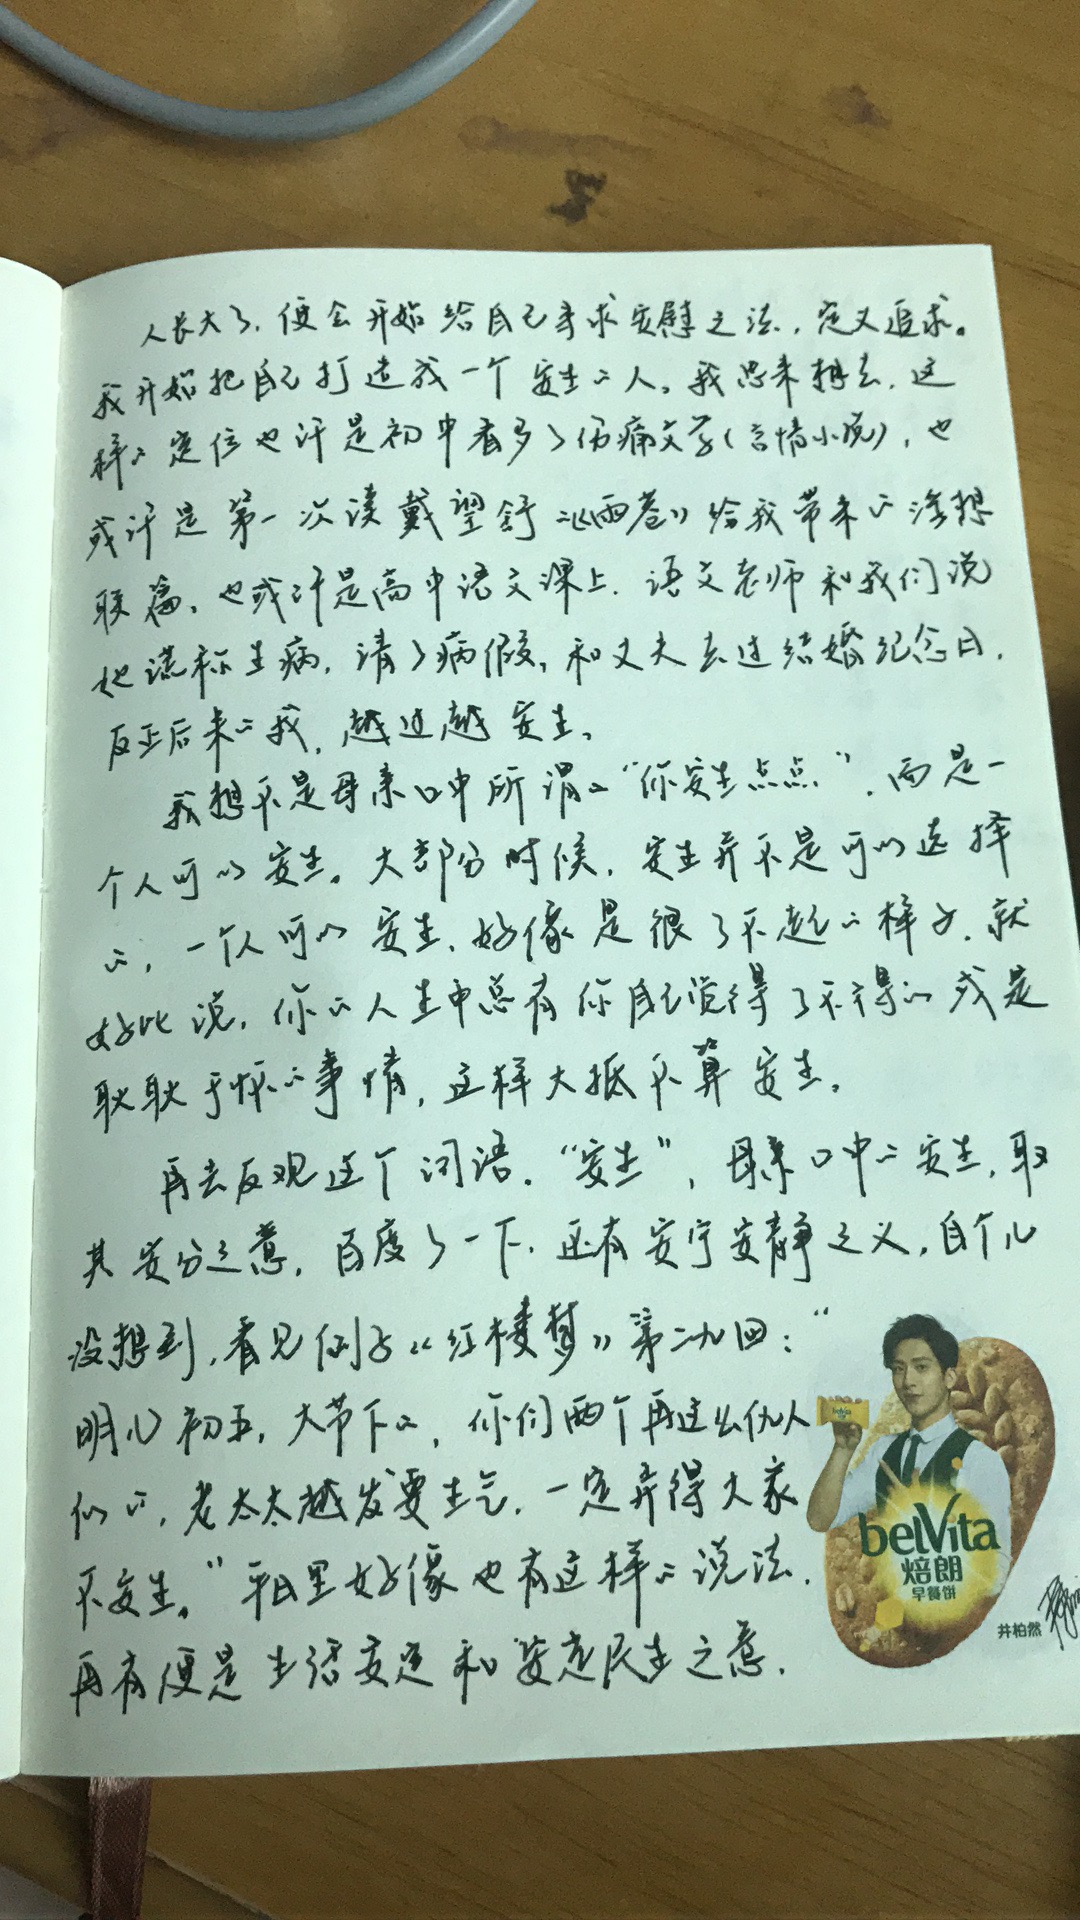 人长大了，便会开始给自己寻求安慰之法，定义追求。
我开始把自己打造成一个安生的人。我思来想去，这
样的定位也许是初中看多了伤痛文学（言情小说），也
或许是第一次读戴望舒的《雨巷》给我带来的浮想
联篇，也或许是高中语文课上，语文老师和我们说
她谎称生病，请了病假，和丈夫去过结婚纪念日，
反正后来的我，越过越安生。
我想不是母亲口中所谓的“你安生点点”，而是一
个人可以安生。大部分时候，安生并不是可以选择
的，一个人可以安生，好像是很了不起的样子，就
好比说，你的人生中总有你自己觉得了不得的或是
耿耿于怀的事情，这样大抵不算安生。
再去反观这个词语，“安生”，母亲口中的安生，取
其安分之意，百度了一下，还有安宁安静之义，自个儿
没想到，看见例子《红楼梦》第二九回：“
明儿初五，大节下的，你们两个再这么仇人
似的，老太太越发要生气，一定弄得大家
不安生。”平日里好像也有这样的说法，
再有便是生活安定和安定民生之意，
belVita
焙朗
早餐饼
井柏然
belVita